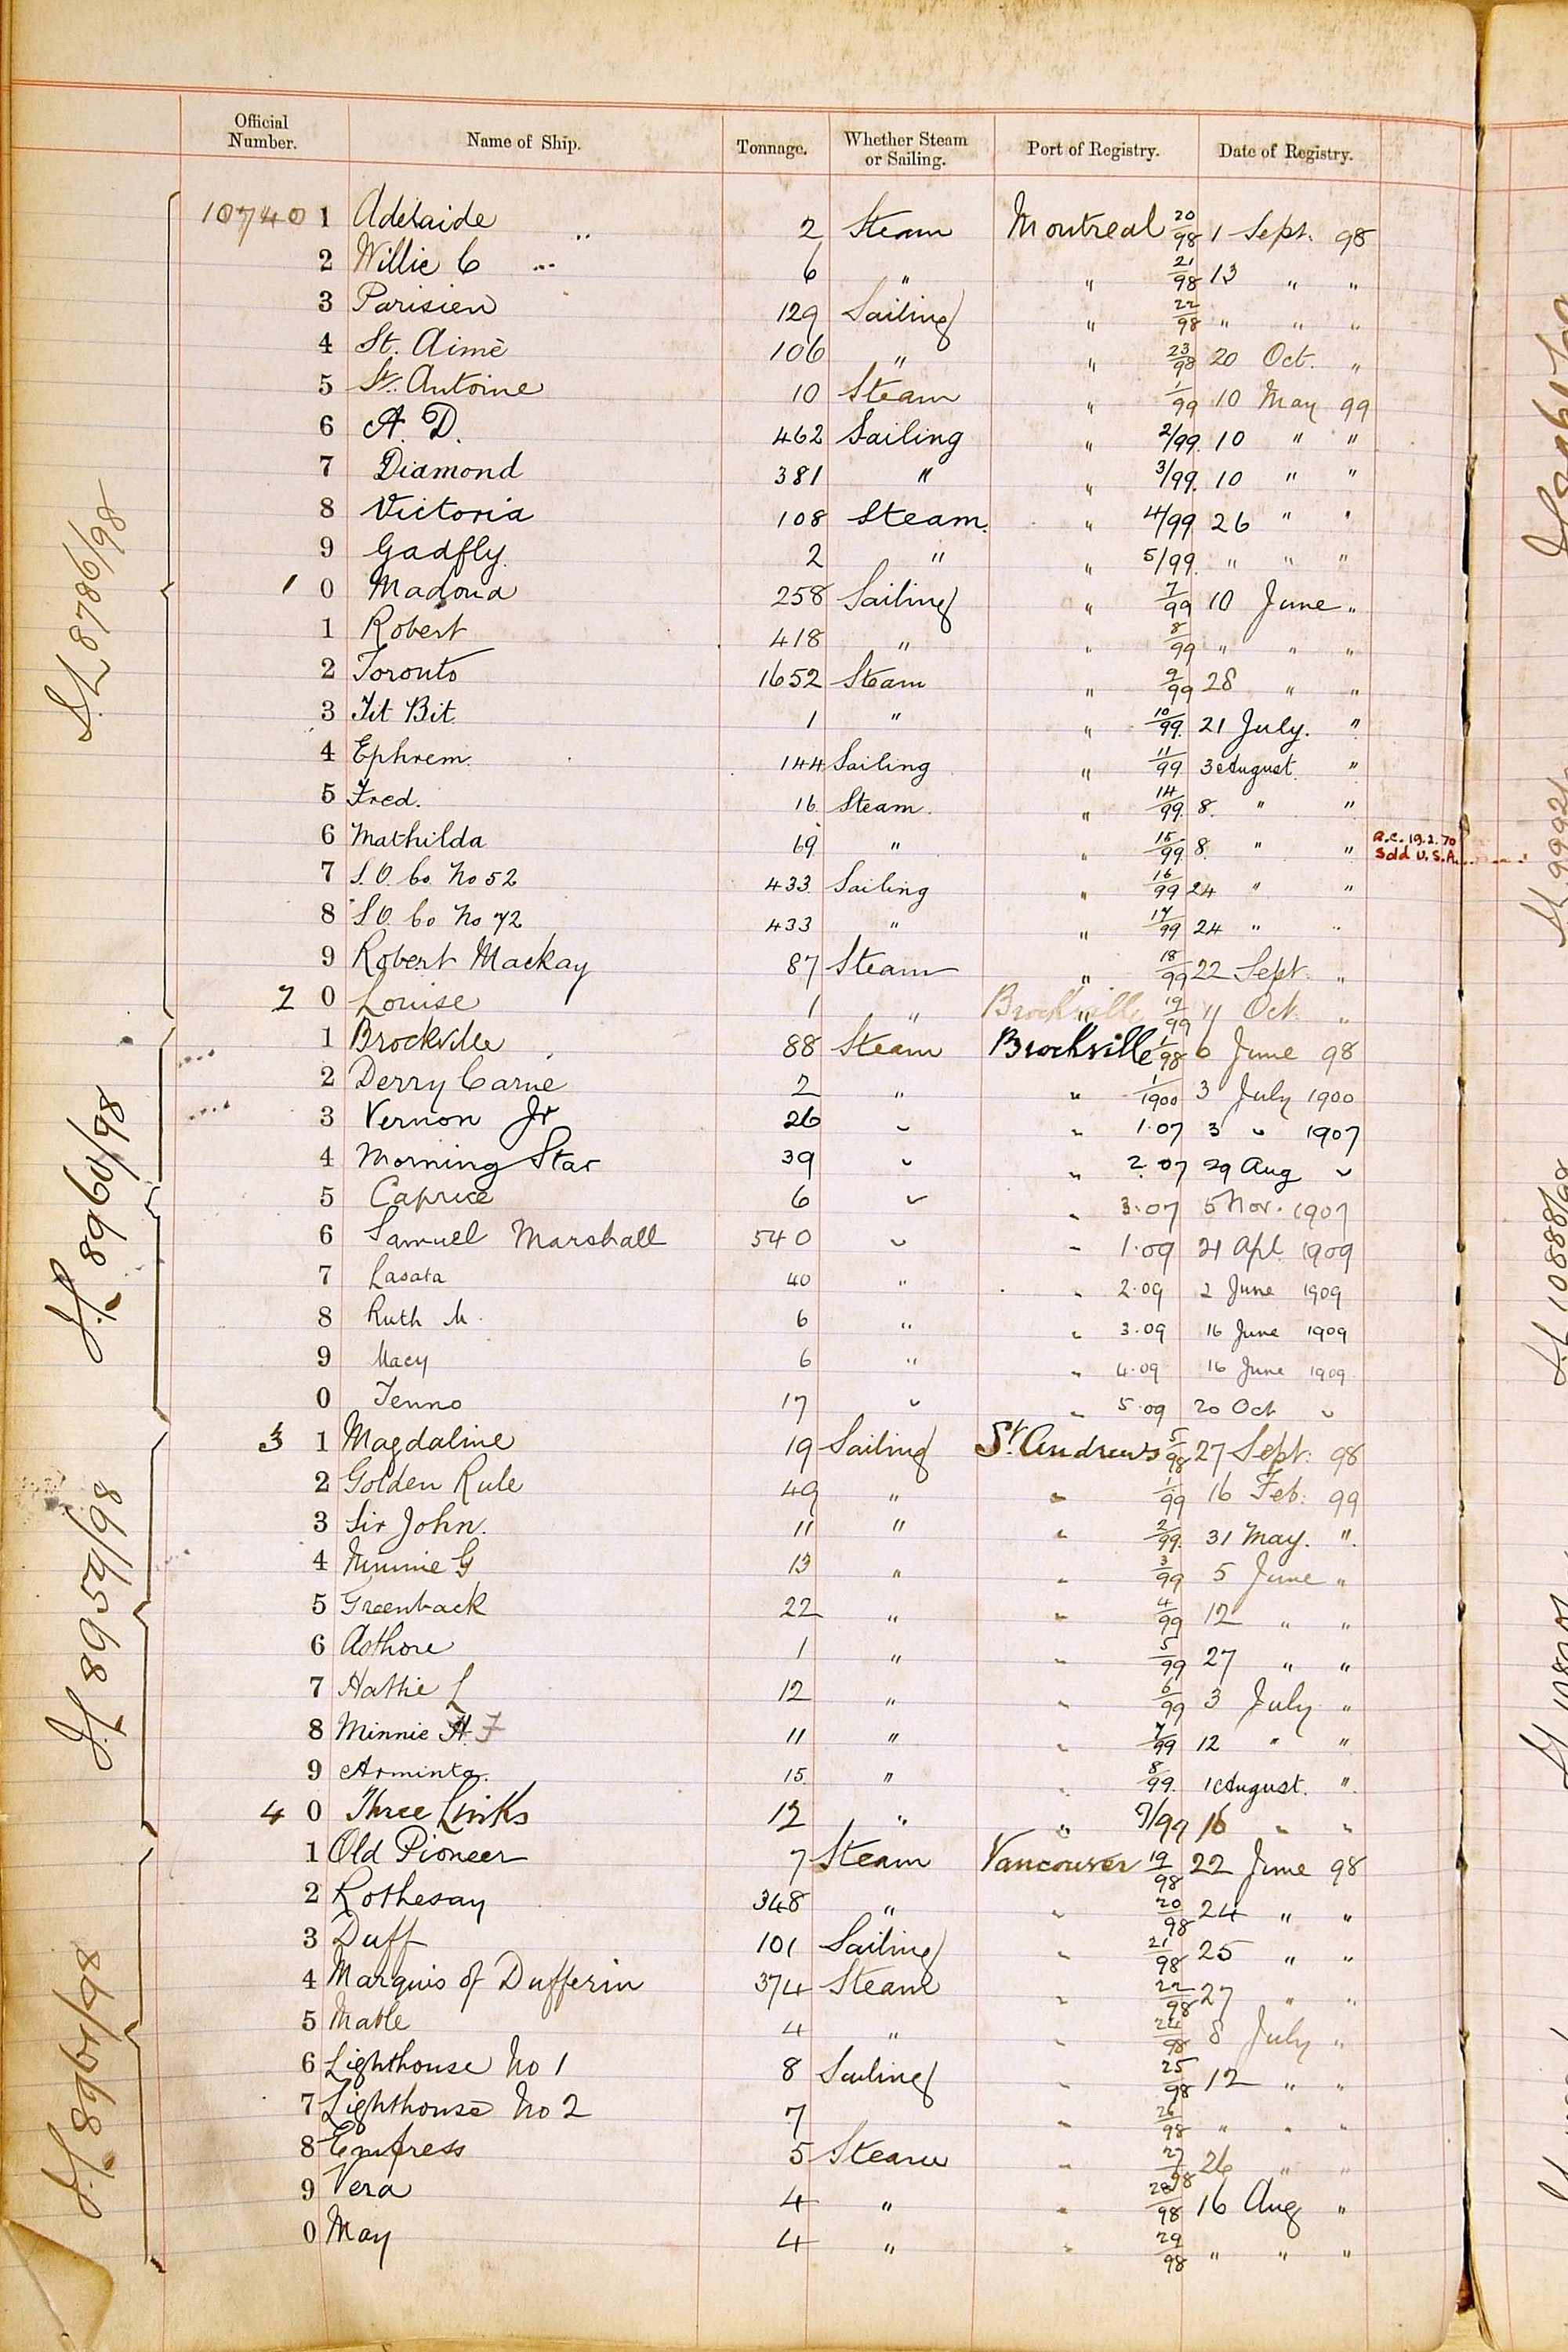 Official Number. Name of Ship. Tonnage. Whether Steam or Sailing. Port of Registry. Date of Registry.
10740 1 Adelaide 2 Steam Montreal 20/98 1 Sept. 98
2 Willie C 6 " " 21/98 13 " "
3 Parisien 129 Sailing " 22/98 " " "
4 St. Aimè 106 " " 23/98 20 Oct. "
5 St. Antoine 10 Steam " 1/99 10 May 99
6 A. D. 462 Sailing " 2/99. 10 " "
7 Diamond 381 " " 3/99. 10 " "
8 Victoria 108 Steam. " 4/99 26 " "
9 Gadfly. 2 " " 5/99. " " "
1 0 Madona 258 Sailing " 7/99 10 June "
1 Robert 418 " " 8/99 " " "
2 Toronto 1652 Steam " 9/99 28 " "
3 Tit Bit. 1 " " 10/99. 21 July. "
4 Ephrem. 144 Sailing " 11/99 3 August. "
5 Fred. 16 Steam. " 14/99. 8. " "
6 Mathilda 69 " " 15/99 8. " " R.C. 19.2.70 Sold U.S.A.
7 S.O. Co No 52 433 Sailing " 16/99 24 " "
8 S.O. Co No 72 433 " " 17/99 24 " "
9 Robert Mackay 87 Steam " 18/99 22 Sept. "
2 0 Louise 1 " Brockville " 19/99 11 Oct. "
1 Brockville 88 Steam Brockville 1/98 6 June 98
2 Derry Carne 2 " " 1/1900 3 July 1900
3 Vernon Jr 26 " " 1.07 3 " 1907
4 Morning Star 39 " " 2.07 29 Aug "
5 Caprice 6 " " 3.07 5 Nov. 1907
6 Samuel Marshall 540 " " 1.09 21 Apl. 1909
7 Lasata 40 " " 2.09 2 June 1909
8 Ruth M. 6 " " 3.09 16 June 1909
9 Macy 6 " " 4.09 16 June 1909
0 Tenno 17 " " 5.09 20 Oct "
3 1 Magdaline 19 Sailing St. Andrews 5/98 27 Sept: 98
2 Golden Rule 49 " " 1/99 16 Feb: 99
3 Sir John. 11 " " 2/99. 31 May. "
4 Minnie G 13 " " 3/99 5 June "
5 Greenback 22 " " 4/99 12 " "
6 Asthore 1 " " 5/99 27 " "
7 Hattie L 12 " " 6/99 3 July "
8 Minnie H. F 11 " " 7/99 12 " "
9 Arminta. 15 " " 8/99. 1 August. "
4 0 Three Links 12 " " 9/99 16 " "
1 Old Pioneer 7 Steam Vancouver 19/98 22 June 98
2 Rothesay 348 " " 20/98 24 " "
3 Duff 101 Sailing " 21/98 25 " "
4 Marquis of Dufferin 374 Steam " 22/98 27 " "
5 Mable 4 " " 24/98 8 July "
6 Lighthouse No 1 8 Sailing " 25/98 12 " "
7 Lighthouse No 2 7 " 26/98 " " "
8 Empress 5 Steam " 27/98 26 " "
9 Vera 4 " " 28/98 16 Aug "
0 May 4 " " 29/98 " " "
S.L 8786/98
S.L 8960/98
S.L 8959/98
S.L 8961/98